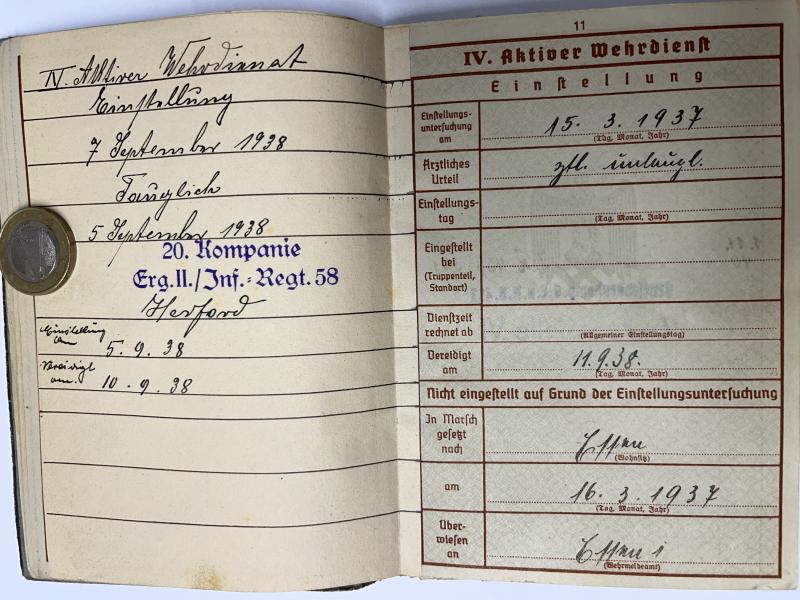 IV. Aktiver Wehrdienst
Einstellung
7 September 1938
Tauglich
5 September 1938
20. Kompanie
Erg.II./Inf.-Regt. 58
Herford
Einstellung
am 5.9.38
Vereidigt
am. 10.9.38
11
IV. Aktiver Wehrdienst
Einstellung
Einstellungs-
untersuchung
am
15. 3. 1937
(Tag, Monat, Jahr)
Ärztliches
Urteil
ztl. untaugl.
Einstellungs-
tag
(Tag, Monat, Jahr)
Eingestellt
bei
(Truppenteil,
Standort)
Dienstzeit
rechnet ab
(Allgemeiner Einstellungstag)
Vereidigt
am
11.9.38.
(Tag, Monat, Jahr)
Nicht eingestellt auf Grund der Einstellungsuntersuchung
In Marsch
gesetzt
nach
Essen
(Wohnsitz)
am
16. 3. 1937
(Tag, Monat, Jahr)
Über-
wiesen
an
Essen 1
(Wehrmeldeamt)